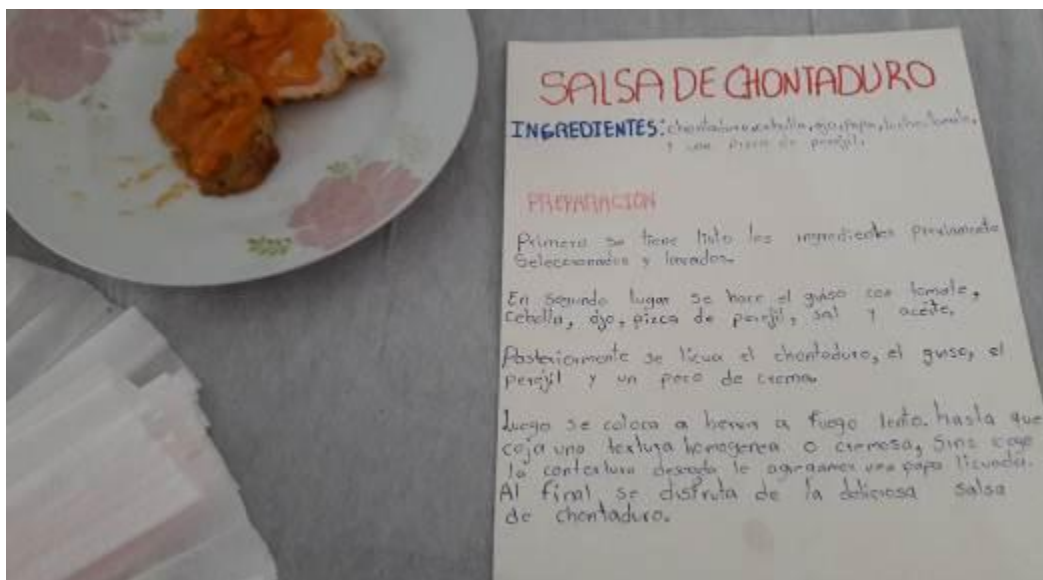 SALSA DE CHONTADURO
INGREDIENTES: chontaduro, cebolla, ajo, papa, leche, tomate,
y una pizca de perejil.
PREPARACIÓN
Primero se tiene listo los ingredientes previamente
Seleccionados y lavados.
En segundo lugar se hace el guiso con tomate,
cebolla, ajo, pizca de perejil, sal y aceite.
Posteriormente se licua el chontaduro, el guiso, el
perejil y un poco de crema.
Luego se coloca a hervir a fuego lento. hasta que
coja una textura homogenea o cremosa, Sino coje
la contextura deseada le agregamos una papa licuada.
Al final se disfruta de la deliciosa salsa
de chontaduro.